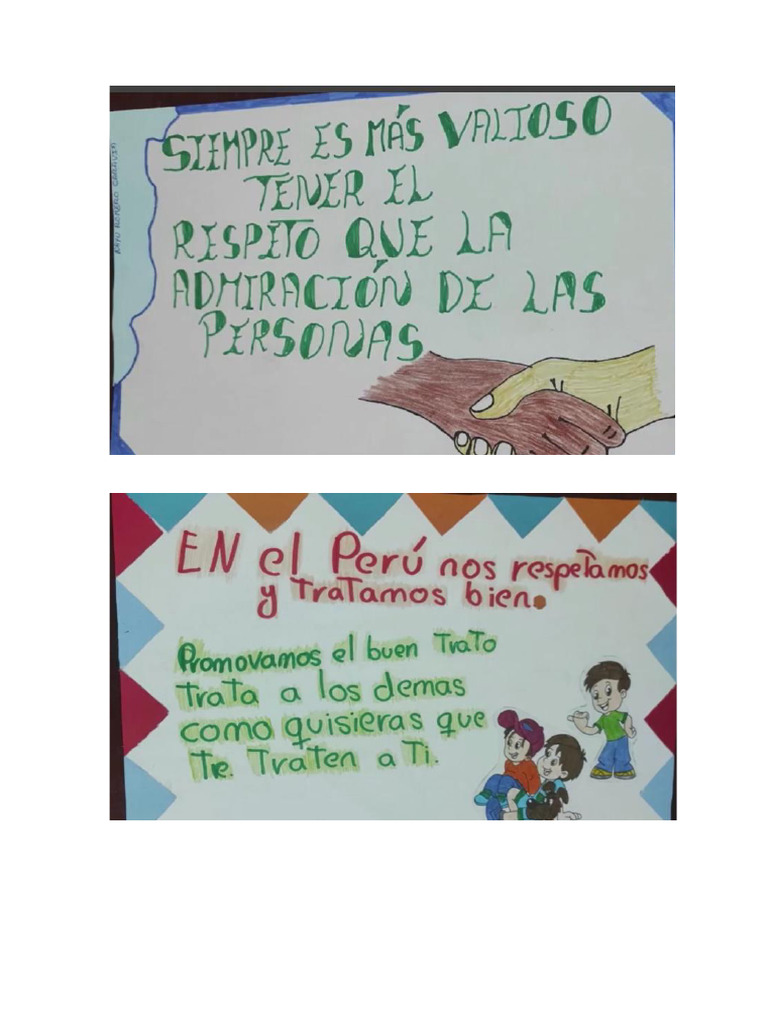 SIEMPRE ES MÁS VALIOSO
TENER EL
RESPETO QUE LA
ADMIRACIÓN DE LAS
PERSONAS
EN el Perú nos respetamos
y traTamos bien.
Promovamos el buen TraTo
TraTa a los demas
como quisieras que
Te TraTen a Ti.